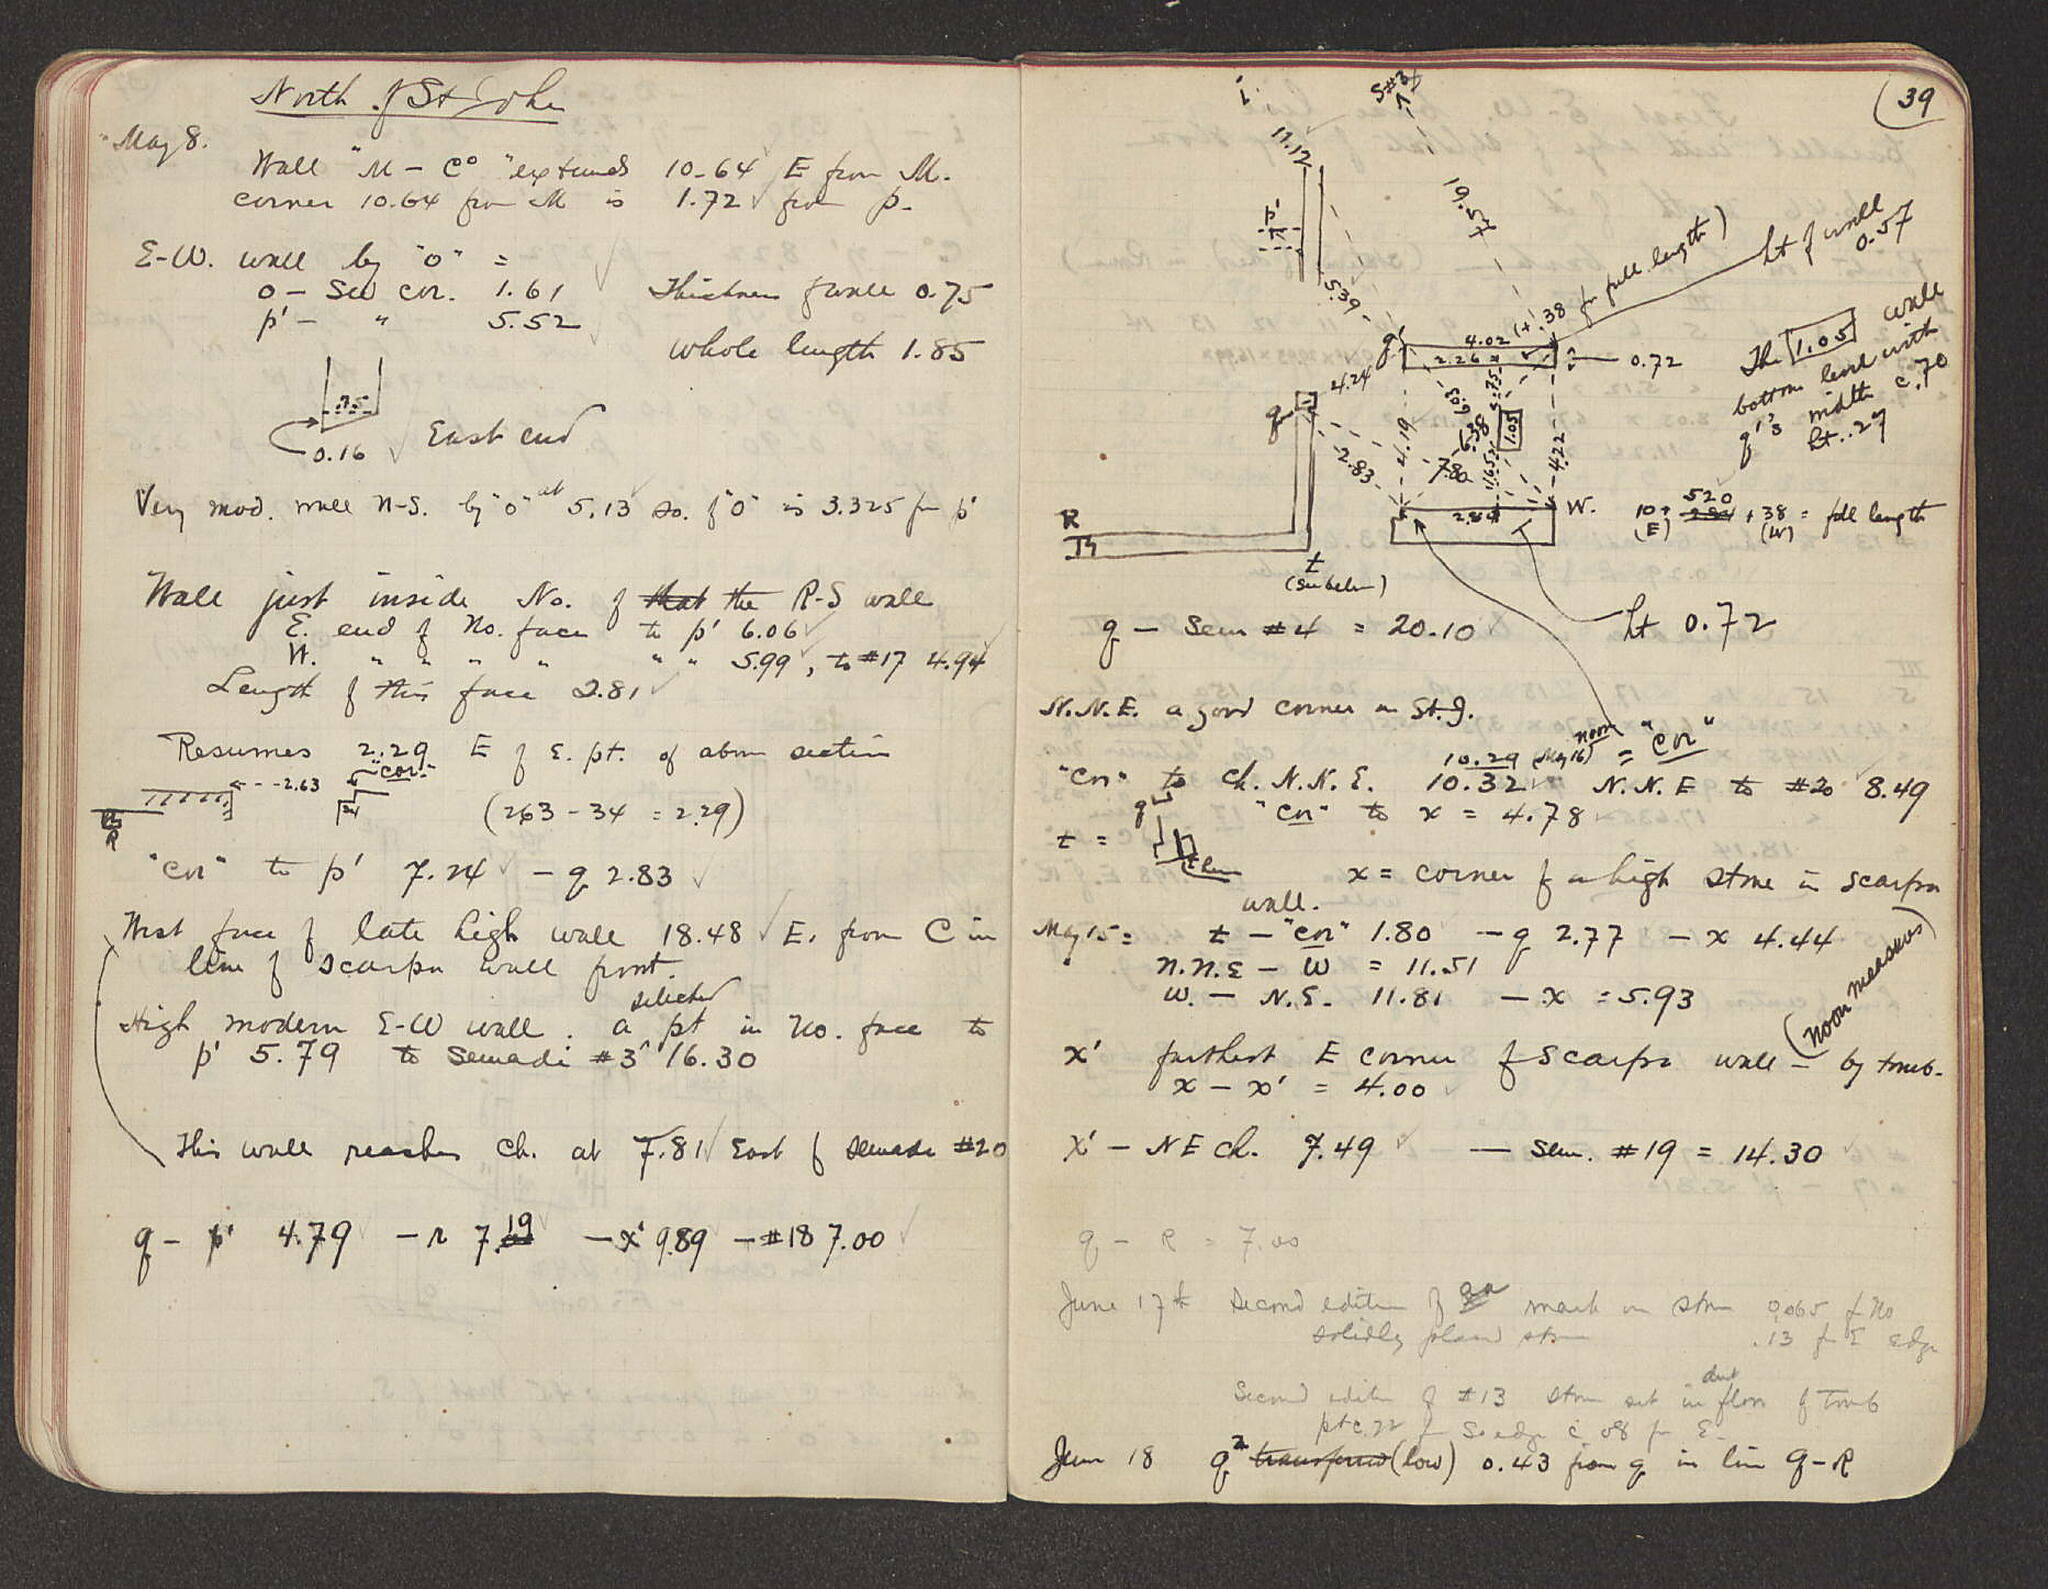 North of St John
May 8.
Wall "M – C° " extends 10.64 E from M.
corner 10.64 from M is 1.72 from p.
E-W. wall by "o" =
o – SW cor. 1.61 Thickness of wall 0.75
p' – " 5.52
whole length 1.85
.75
0.16 East end
Very mod. wall N-S. by "o" at 5.13 so. of "o" is 3.325 fr p'
Wall just inside No. of that the R-S wall
E. end of No. face to p' 6.06
W. " " " " " " 5.99, to #17 4.94
Length of this face 2.81
Resumes 2.29 E of E. pt. of above section
2.63 "cor"
34
(263 – 34 = 2.29)
R
"Cor" to p' 7.24 – q 2.83
West face of late high wall 18.48 E. from C in
line of scarpa wall front.
selected
High modern E-W wall. a pt in No. face to
p' 5.79 to Senadi #3 16.30
This wall reaches Ch. at 7.81 East of Senadi #20
q – p' 4.79 – r 7.19 – x' 9.89 – #18 7.00
39
i
S#3
11.12
19.57
p'
5.39
4.02 (+ .38 for full length)
ht of wall
0.57
q'
2.26
0.72
The 1.05 wall
bottom level with
q''s width c.70
ht. .27
4.24
q
5.09
.575
6.38
1.05
4.19
2.83
7.80
1.65
4.22
2.84
W.
10 + 520 + 38 = full length
(E) (W)
R
t
(see below)
q – Sem #4 = 20.10 ht 0.72
N.N.E. a good corner in St. J.
10.29 (May 16) noon = "Cor"
"Cor" to Ch. N.N.E. 10.32 N.N.E to #20 8.49
"Cor" to x = 4.78
t = q
t here
x = corner of a high stone in scarpa
wall.
May 15 = t – "Cor" 1.80 – q 2.77 – x 4.44
N.N.E – W = 11.51
W. – N.E. 11.81 – x = 5.93
(noon measures)
x' farthest E corner of scarpa wall – by tomb.
x – x' = 4.00
x' – NE ch. 7.49 — Sem. #19 = 14.30
q – R = 7.00
June 17th Second edition of mark on stone 0,065 f No
solidly placed stone .13 fr E edge
Second edition of #13 stone set in floor of Tomb
pt c.22 fr So edge c .08 fr E.
June 18 q² transferred (low) 0.43 from q in line q-R